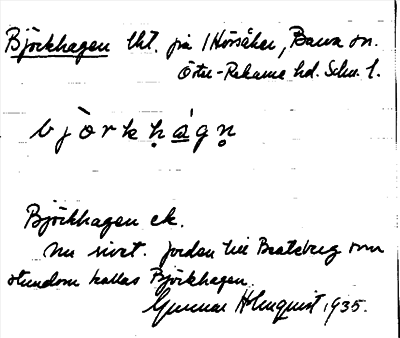 Björkhagen lht. på 1 Hörsåker, Barva sn.
Öster-Rekarne hd. Sdm. l.
bjòrkḥá̲gṇ̊
Björkhagen ek.
nu rivet. Jorden till Bratsberg som
stundom kallas Björkhagen.
Gunnar Holmquist 1935.